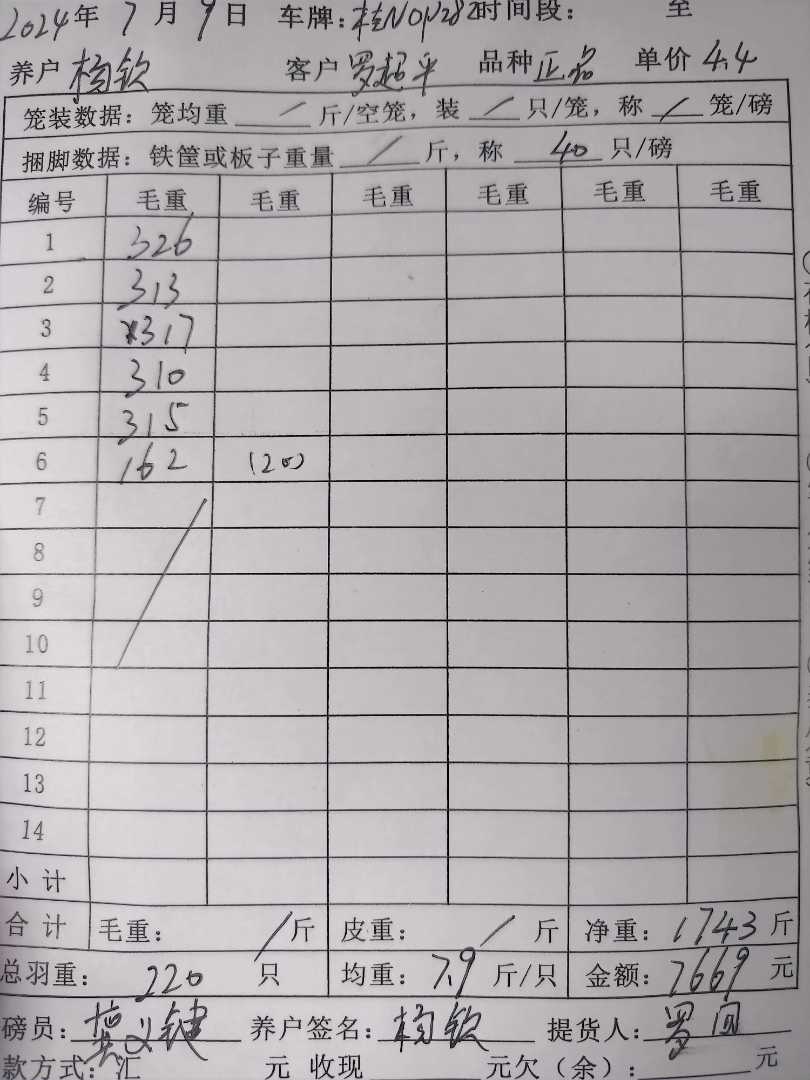 2024年 7月 9日 车牌:桂N0P282时间段: 至
养户 杨钦 客户 罗超平 品种 正名 单价 4.4
笼装数据: 笼均重 / 斤/空笼, 装 / 只/笼, 称 / 笼/磅
捆脚数据: 铁筐或板子重量 / 斤, 称 40 只/磅
编号 毛重 毛重 毛重 毛重 毛重 毛重
1 326
2 313
3 317
4 310
5 315
6 162 (20)
7
8
9
10
11
12
13
14
小 计
合 计 毛重: / 斤 皮重: / 斤 净重: 1743 斤
总羽重: 220 只 均重: 7.9 斤/只 金额: 7669 元
磅员: 义键 养户签名: 杨钦 提货人: 罗
款方式: 汇 元 收现 元欠(余): 元